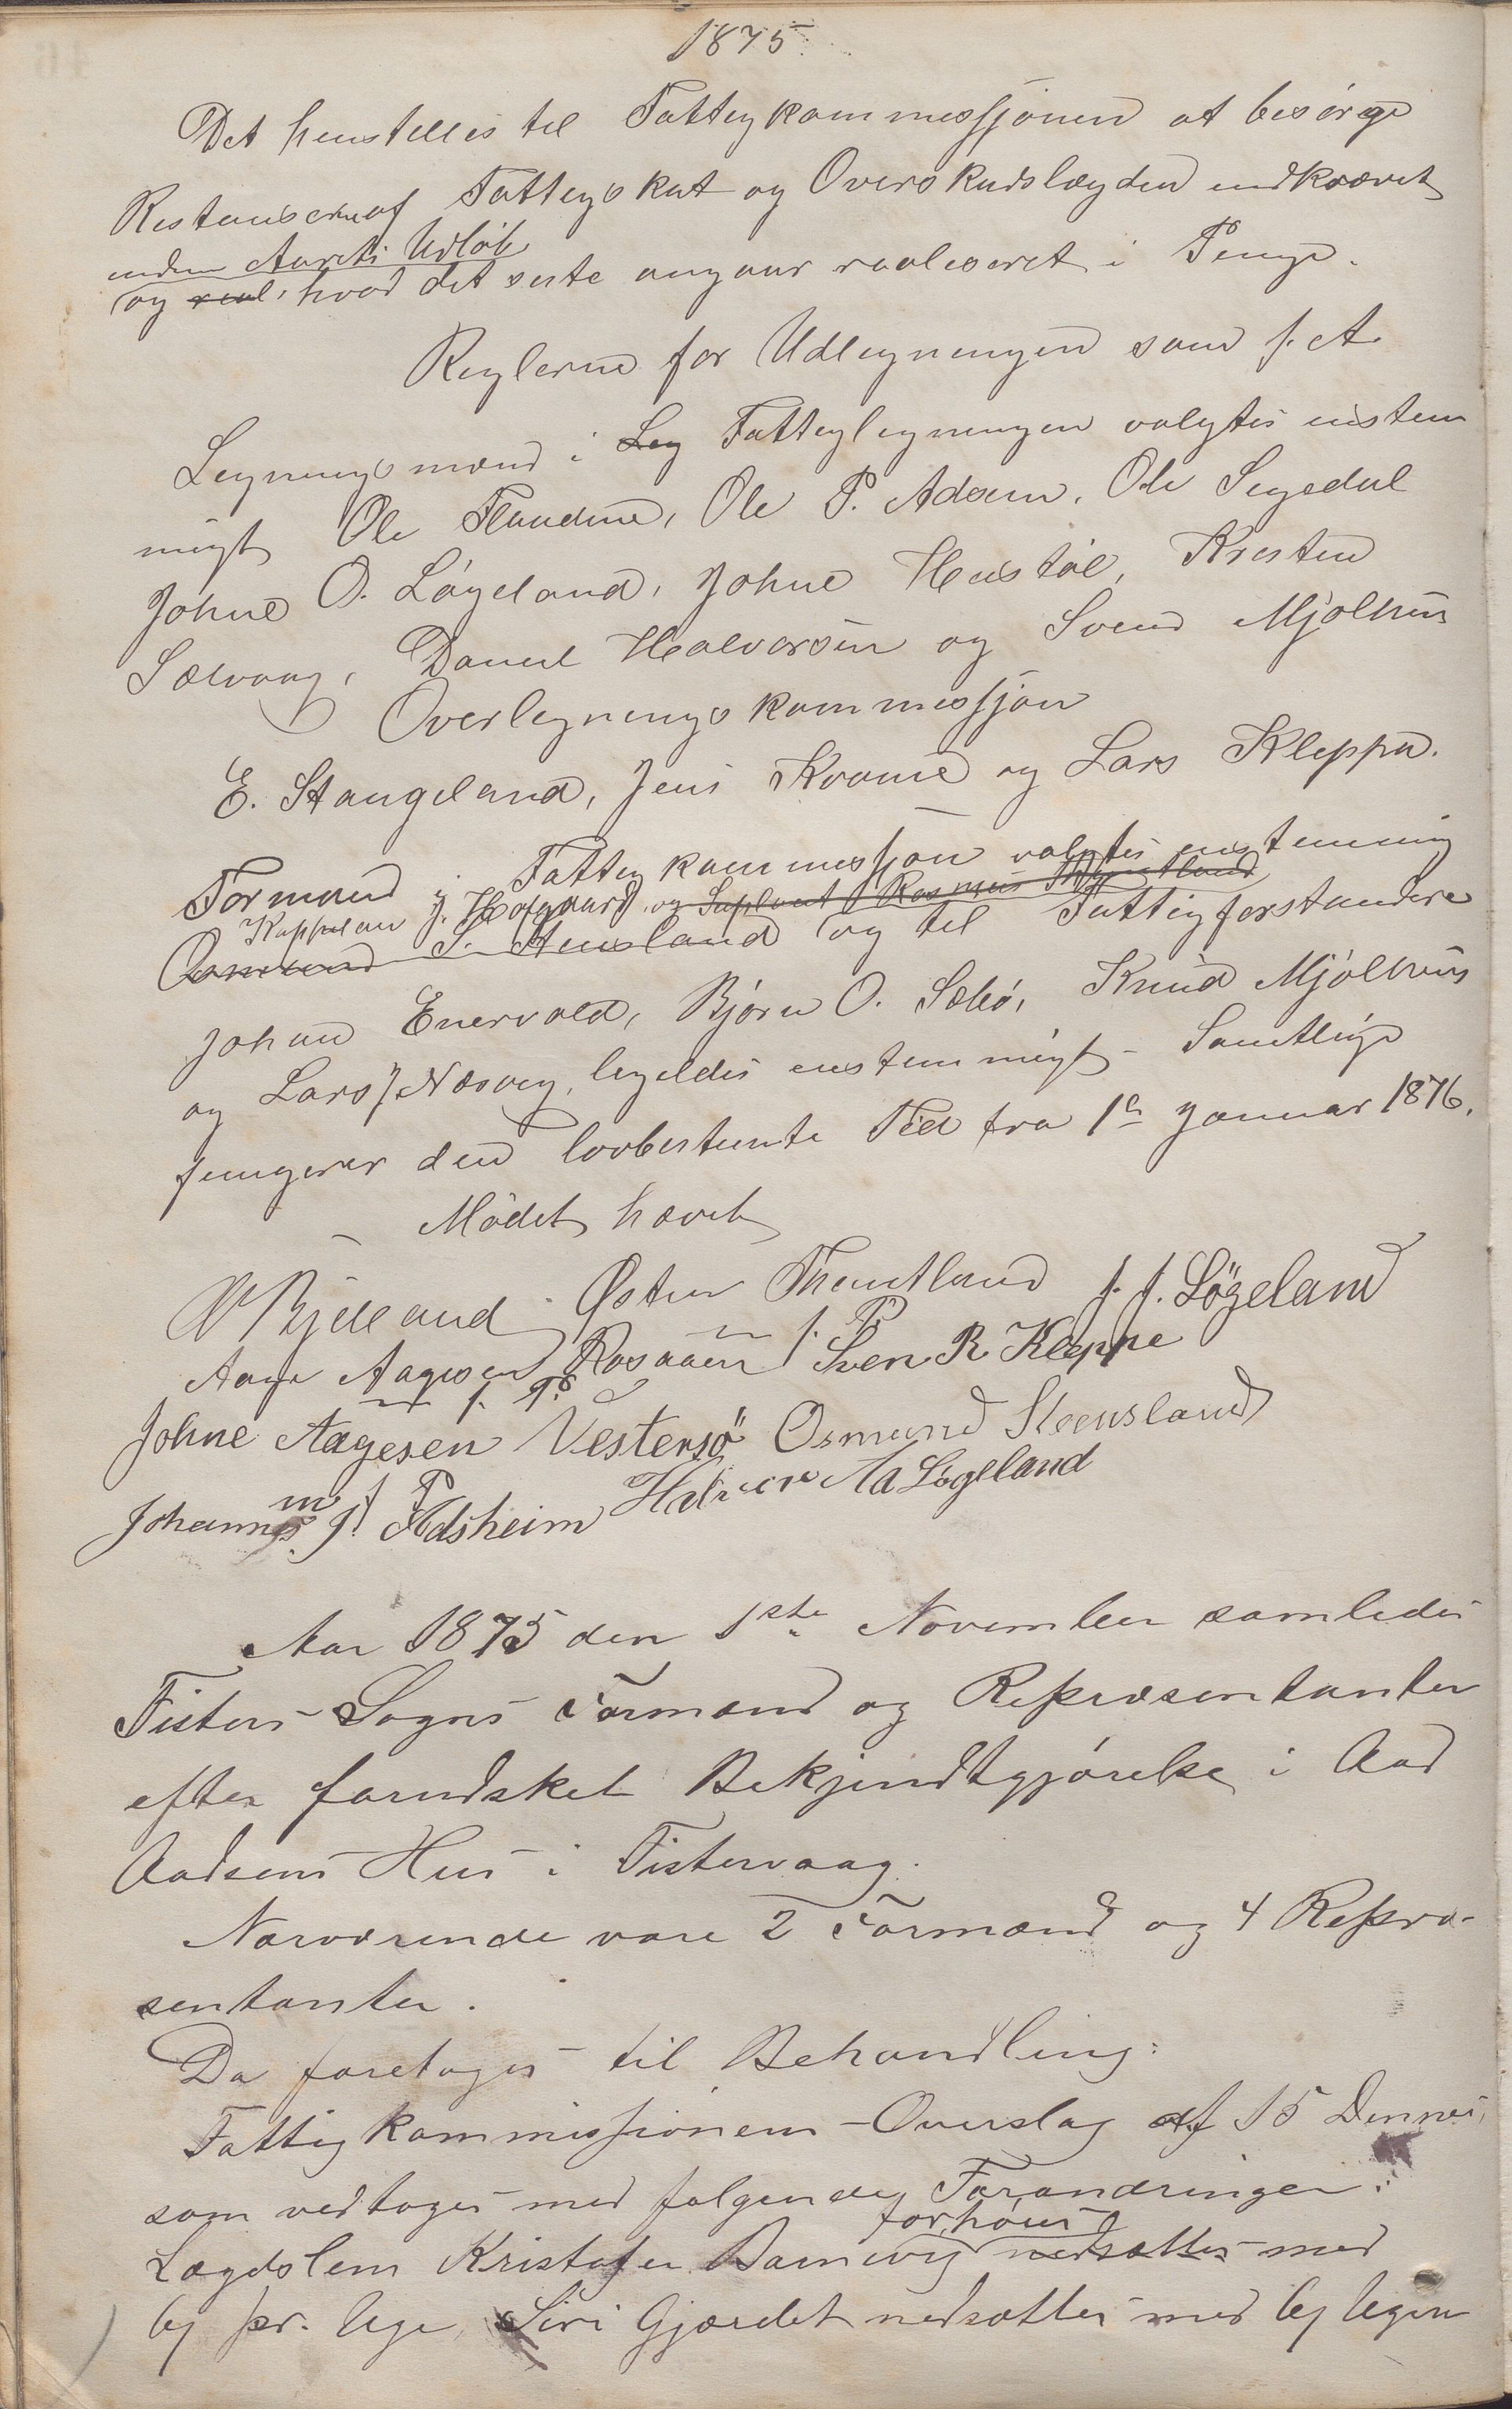 1875
Det henstilles til Fattigkommissjonen at besørge
Restancerne af Fattigskat og Overskudslægden indkrævet
inden Aarets Udløb
og real, hvad det siste angaar realiseret i Penge.
Reglerne for Udligningen som f. A.
Ligningsmænd i Leg Fattigligningen valgtes enstem
migt Ole Flandme, Ole P. Adsem, Ole Segedal
Johne O. Løgeland, Johne Henstøl, Kristen
Sælvaag, Daniel Halvorsen og Svend Mjølhus
Overligningskommissjon
E. Stangeland, Jens Kvame og Lars Kleppa.
Formand i Fattigkommissjon valgtes enstemmig
Kappelan J. Hofgaard og Suplant Rasmus Thentland
Osmund S. Stensland og til Fattigforstandere
Johan Enervold, Bjørn O. Sæbø, Knud Mjølhus
og Lars J. Næsveg, ligeledes enstemmigt - Samtlige
fungerer den lovbestemte Tid fra 1e Januar 1876.
Mødet hævet
Bjelland Østen Thentland J. J. Løgeland
Aage Aagesen Rosaaen Sven R Kleppe
m. f. P.
Johne Aagesen Vestersø Osmund Steensland
m f P
Johannes J. Adsheim Halvor Aa Løgeland
Aar 1875 den 1ste November samledes
Fisters Sogns Formænd og Repræsentanter
efter forudsket Bekjendtgjørelse i Aad
Aadsens Hus i Fistervaag.
Nærværende vare 2 Formænd og 4 Repræ-
sentanter.
Da foretoges til Behandling:
Fattigkommissionens Overslag af 15 Dennes,
som vedtoges med følgende Forandringer:
forhøies
Lægdslem Kristofer Barnevig nedsættes med
6 pr. Uge, Siri Gjærdet nedsættes med 6 Ugen